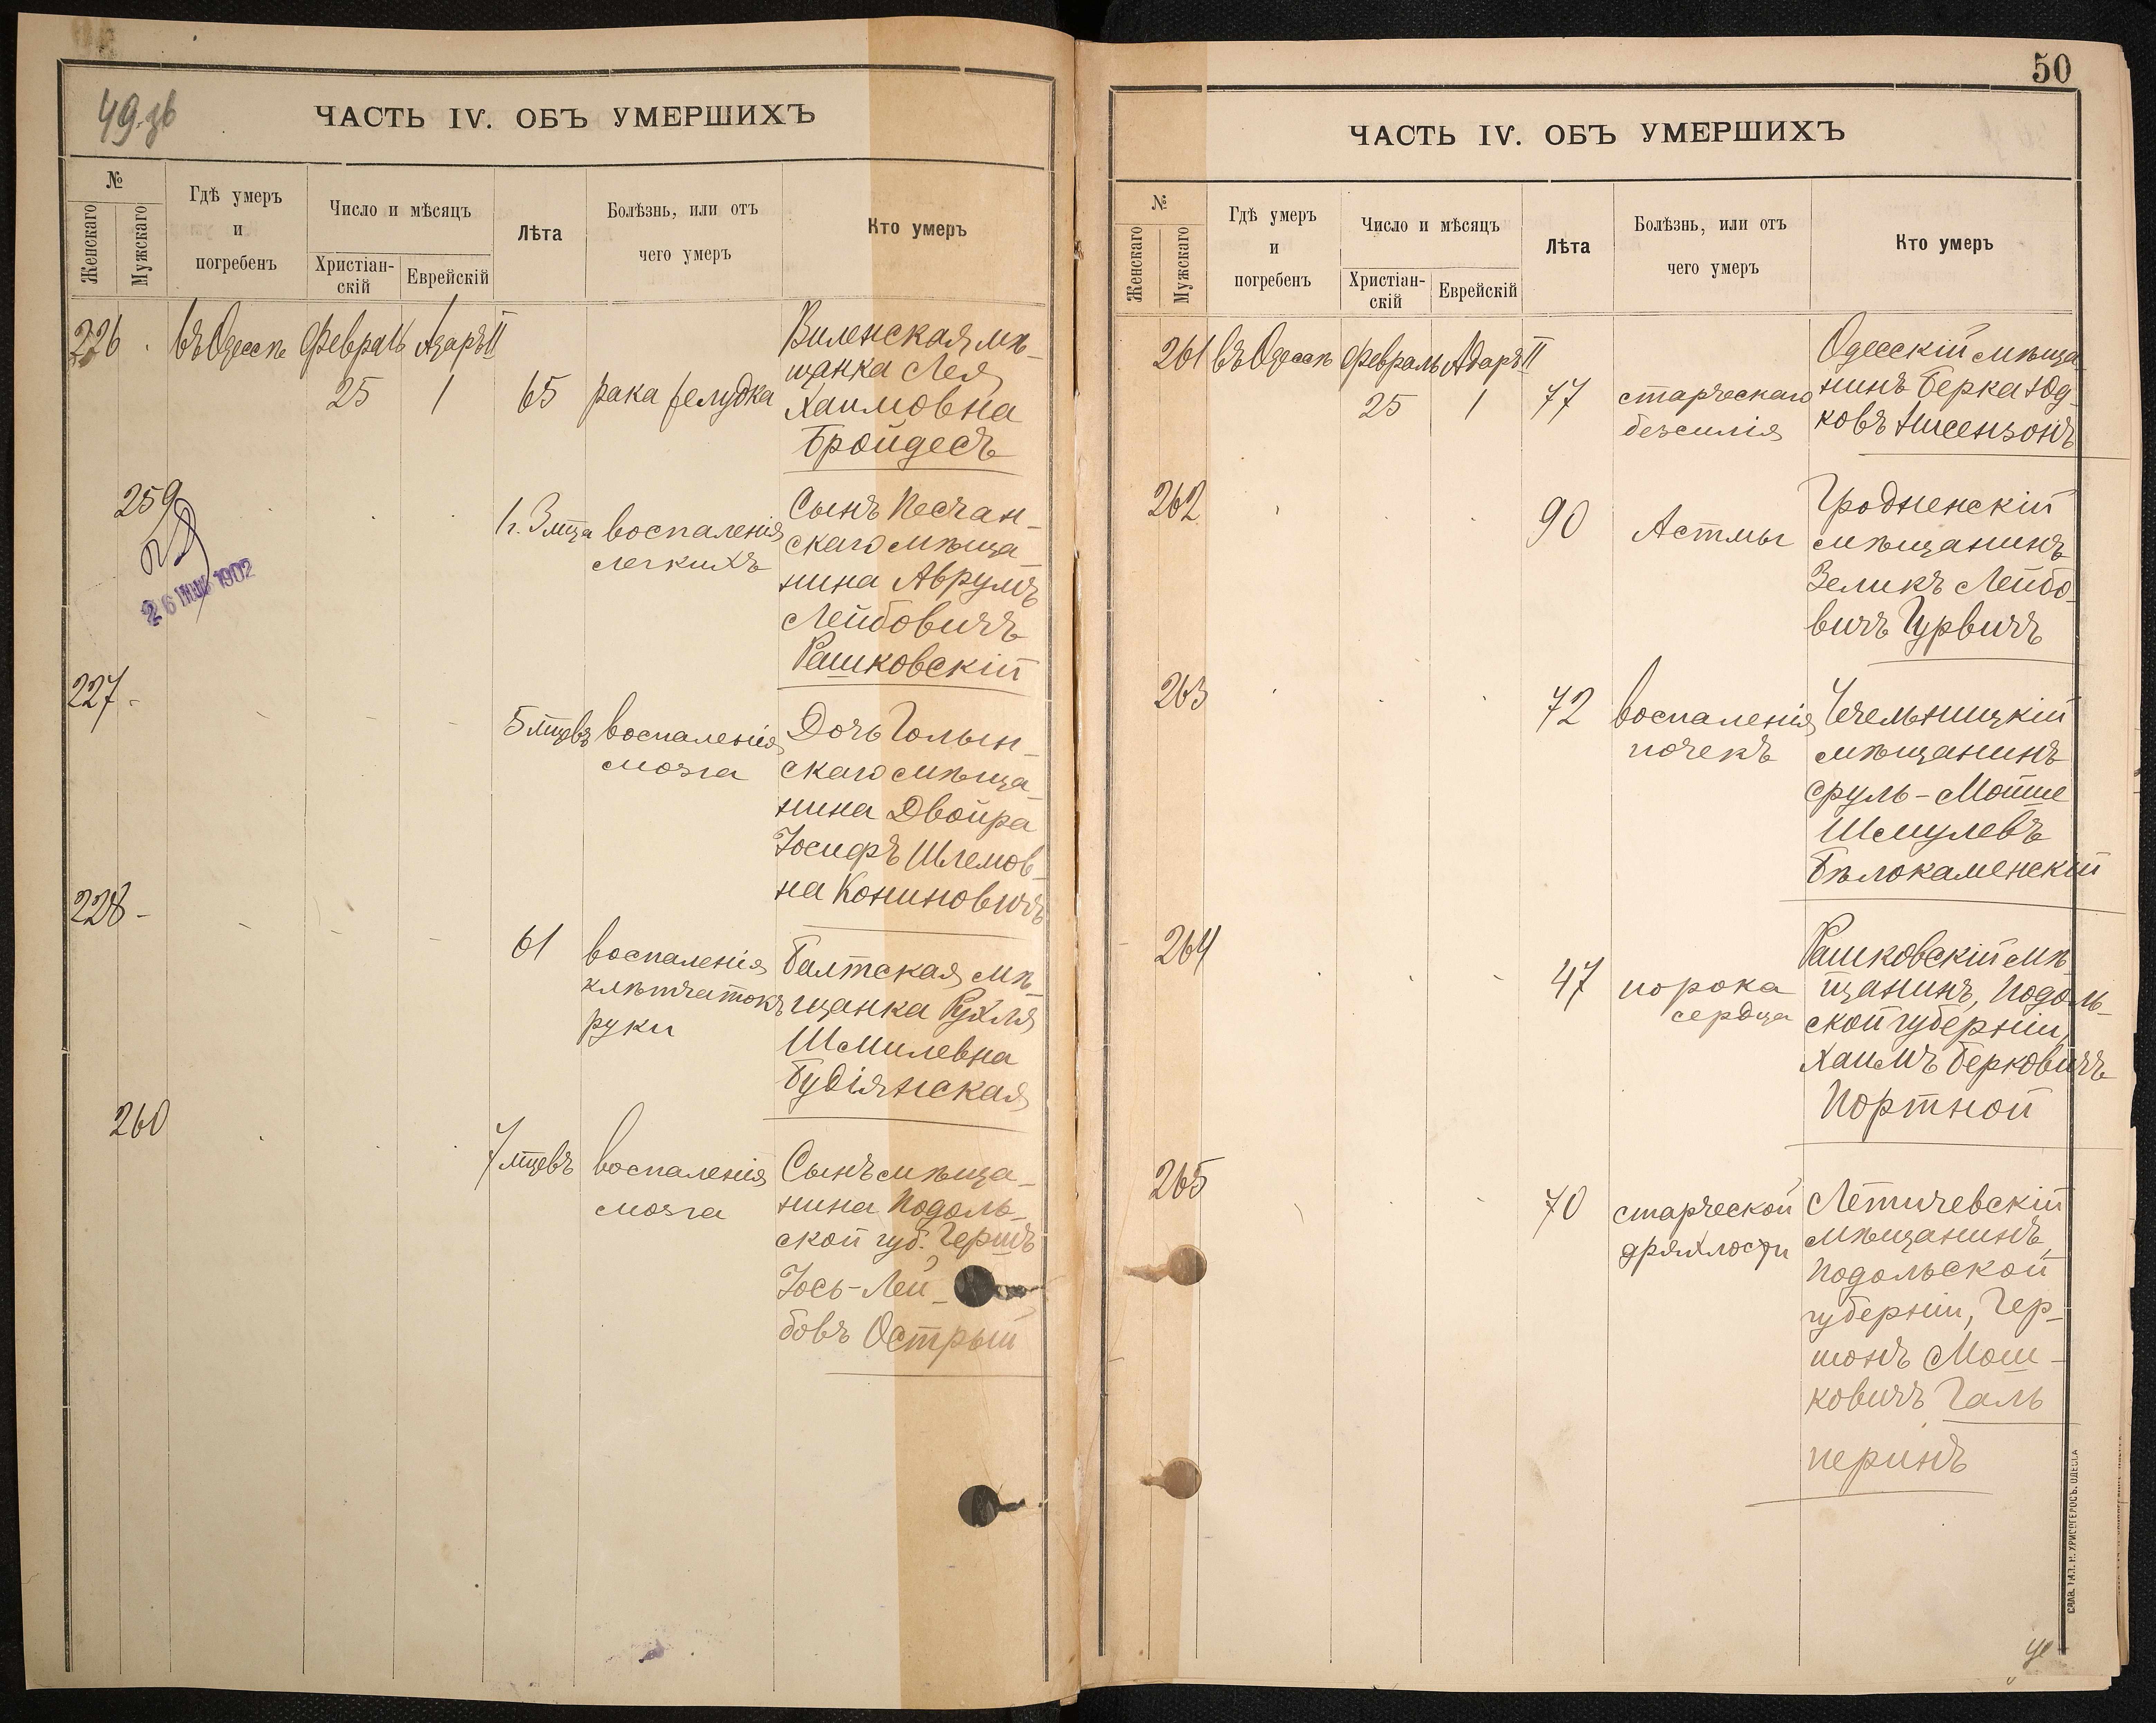 49 зв
ЧАСТЬ IV. ОБЪ УМЕРШИХЪ
№
Женскаго
Мужскаго
Гдѣ умеръ
и
погребенъ
Число и мѣсяцъ
Христіан-
скій
Еврейскій
Лѣта
Болѣзнь, или отъ
чего умеръ
Кто умеръ
226 въ Одессѣ Февраль Адаръ II
25 1 65 рака желудка
Виленская мѣ-
щанка Лея
Хаимовна
Бройдесъ
259
26 1902
1 г. 3 мца воспаленія
легкихъ
Сынъ Песчан-
скаго мѣща-
нина Аврумъ
Лейбовичъ
Рашковскій
227
5 мцевъ воспаленія
мозга
Дочь Голын-
скаго мѣща-
нина Двойра
Іосифъ Шлемов-
на Кониновичъ
228
61 воспаленія
клѣтчатокъ
руки
Балтская мѣ-
щанка Рухля
Шмилевна
Будіянская
260
7 мцевъ воспаленія
мозга
Сынъ мѣща-
нина Подоль-
ской губ. Гершъ
Іось-Лей-
бовъ Острый
50
ЧАСТЬ IV. ОБЪ УМЕРШИХЪ
№
Женскаго
Мужскаго
Гдѣ умеръ
и
погребенъ
Число и мѣсяцъ
Христіан-
скій
Еврейскій
Лѣта
Болѣзнь, или отъ
чего умеръ
Кто умеръ
261 въ Одессѣ Февраль Адаръ II
25 1 77 старческаго
безсилія
Одесскій мѣща-
нинъ Берка Юд-
ковъ Нисензонъ
262
90 Астмы
Гродненскій
мѣщанинъ
Зеликъ Лейбо-
вичъ Гурвичъ
263
72 воспаленія
почекъ
Чечельницкій
мѣщанинъ
Сруль-Мойше
Шмулевъ
Бѣлокаменскій
264
47 порока
сердца
Рашковскій мѣ-
щанинъ, Подоль-
ской губерніи,
Хаимъ Берковичъ
Портной
265
70 старческой
дряхлости
Летичевскій
мѣщанинъ,
Подольской
губерніи, Гер-
шонъ Мош-
ковичъ Галь
перинъ
СЛАВ. ТИП. Н. ХРИСОГЕЛОСЪ. ОДЕССА